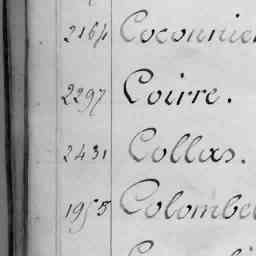 2164 Coconnie
2297 Coirre.
2431 Collas.
1958 Colombe